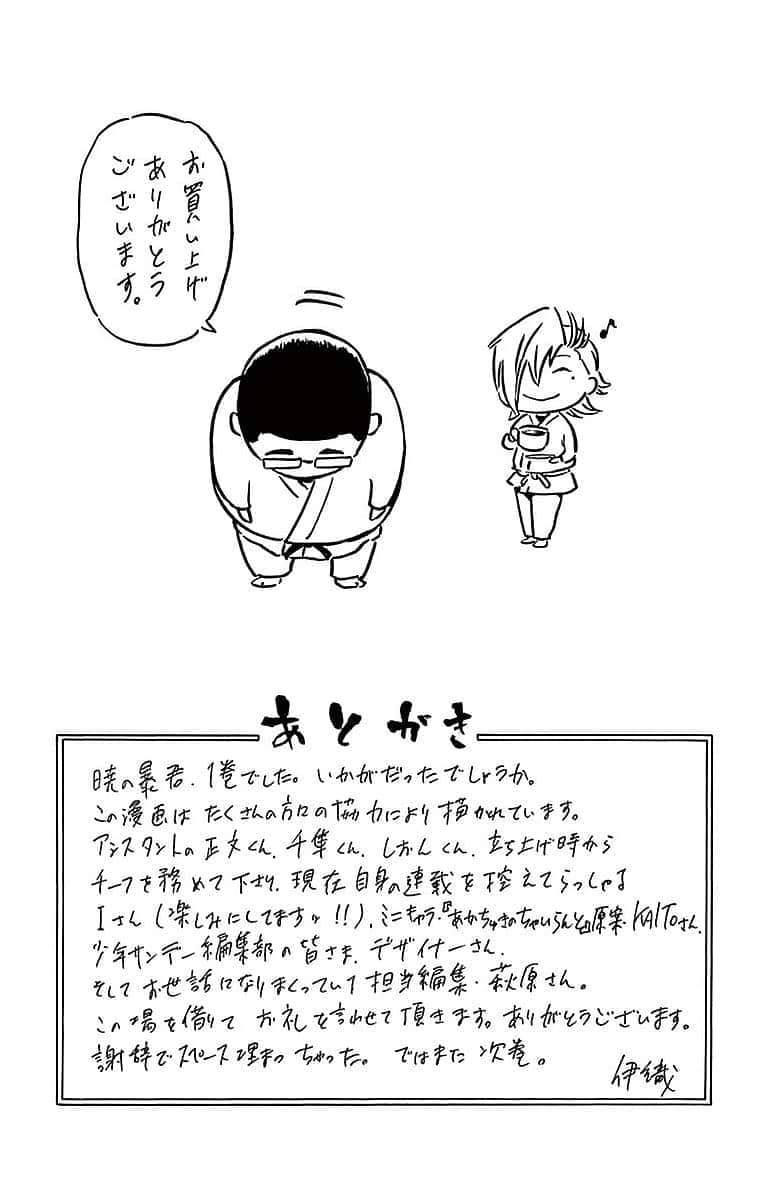 お買い上げ
ありがとう
ございます。
あとがき
暁の暴君、1巻でした。いかがだったでしょうか。
この漫画はたくさんの方々の協力により描かれています。
アシスタントの正文くん、千隼くん、しおんくん、立ち上げ時から
チーフを務めて下さり、現在自身の連載を控えてらっしゃる
Iさん(楽しみにしてますッ!!)、ミニキャラ・『あかちゅきのちゃいらんと』原案・KAITOさん、
少年サンデー編集部の皆さま、デザイナーさん、
そしてお世話になりまくっている担当編集・萩原さん。
この場を借りてお礼を言わせて頂きます。ありがとうございます。
謝辞でスペース埋まっちゃった。ではまた次巻。
伊織